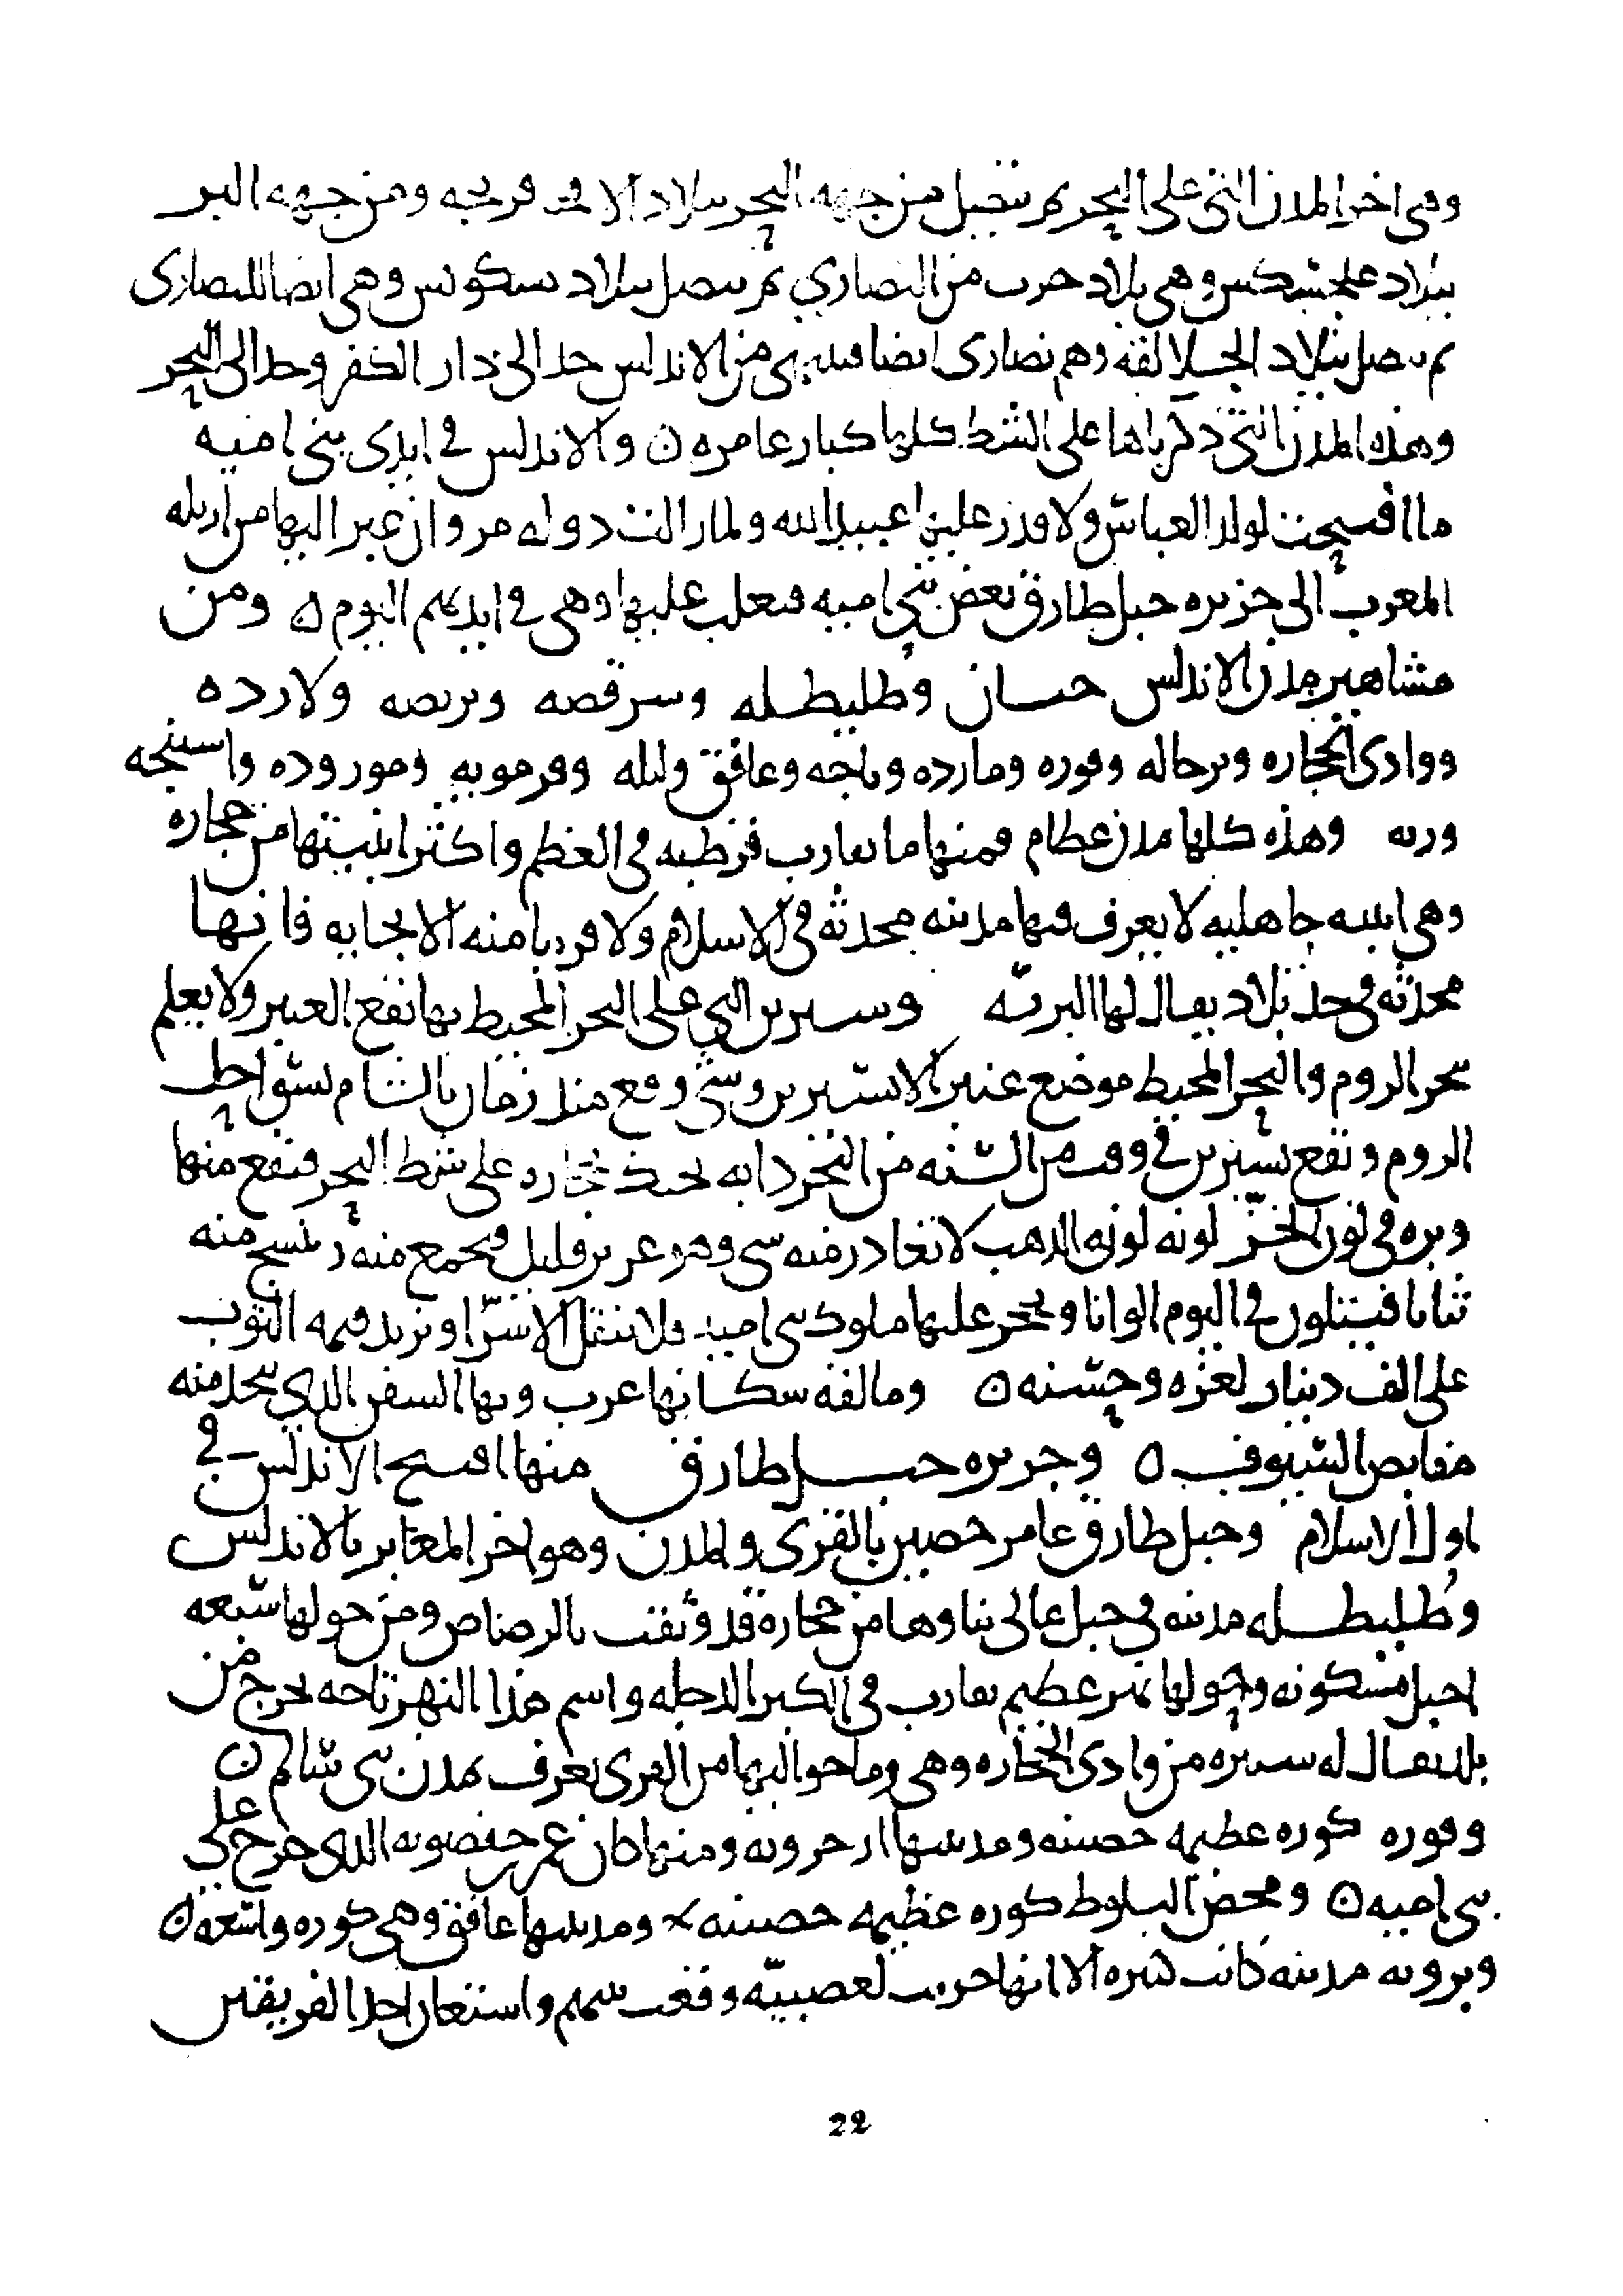 وهي اخر المدن التي على البحر ثم يتصل من جهه البحر ببلاد الافرنجه ومن جهه البر
ببلاد علجشكس وهي بلاد حرب من النصاري ثم يتصل ببلاد بسكونس وهي ايضا للنصارى
ثم يتصل ببلاد الجلالقه وهم نصارى ايضا فينتهى من الاندلس حد الى دار الكفر وحد الى البحر
وهذه المدن التي ذكرناها على الشط كلها كبار عامره ن والاندلس في ايدى بني اميه
ما افتتحت لولد العباس ولا قدر عليها عبيد الله ولما زالت دوله مروان عبر اليها من ازيله
المغرب الى جزيره جبل طارق بعض بني اميه فتغلب عليها وهي في ايديهم اليوم ن ومن
مشاهير مدن الاندلس جيان وطليطله وسرقصه وتريصه ولارده
ووادى الحجاره وترجاله وقوره ومارده وباجه وغافق ولبله وقرمونه وموروده واستجه
وريه وهذه كلها مدن عظام فمنها ما يقارب قرطبه في العظم واكثر ابنيتها من حجاره
وهي ابنيه جاهليه لا يعرف فيها مدينه محدثه في الاسلام ولا قريبا منه الا بجانه فانها
محدثه في حد بلاد يقال لها البريه وسنترين التي على البحر المحيط بها يقع العنبر ولا يعلم
ببحر الروم والبحر المحيط موضع عنبر الا شنترين وشي وقع منذ زمان بالشام بسواحل
الروم وتقع بشنترين في وقت من السنه من البحر دابه تحتك بحجاره على شط البحر فيقع منها
وبره في لون الخز لونه لون الذهب لا يغادر منه شي وهو عزيز قليل فيجمع منه وينسج منه
ثيابا فيتلون في اليوم الوانا ويحجر عليها ملوك بني اميه فلا ينقل الا سرا وتزيد قيمه الثوب
على الف دينار لعزه وحسنه ن ومالقه سكانها عرب وبها السفن الذي يتخذ منه
مقابض السيوف ن وجزيره جبل طارق منها افتتح الاندلس في
اول الاسلام وجبل طارق عامر حصين بالقرى والمدن وهو اخر المعابر بالاندلس
وطليطله مدينه في جبل عالى بناوها من حجارة قد وثقت بالرصاص ومن حولها سبعه
اجبل مسكونه وحولها نهر عظيم يقارب في الكبر الدجله واسم هذا النهر تاجه يخرج من
بلد يقال له سنتره من وادى الحجاره وهي وما حواليها من القرى يعرف بمدن بنى سالم ن
وقوره كوره عظيمه حصينه ومنها كان عمر حفصونه الذي خرج على
بنى اميه ن وفحص البلوط كوره عظيمه حصينه ومدينتها غافق وهي كوره واسعه ن
مدينه كانت كبيره الا انها خربت لعصبيّه وقعت بينهم واستعان احد الفريقين
22